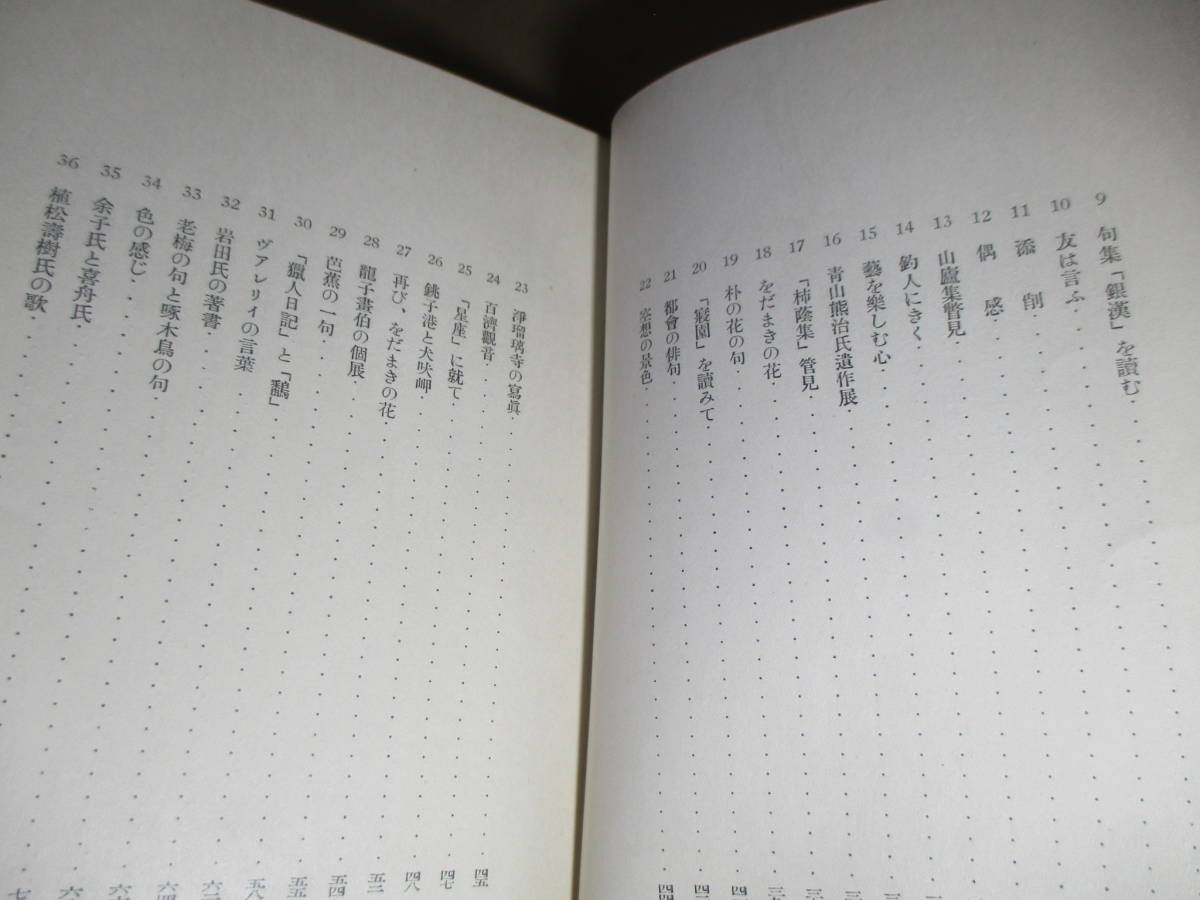 9 句集『銀漢』を讀む
10 友は言ふ
11 添削
12 偶感
13 山廬集管見
14 釣人にきく
15 藝を樂しむ心
16 青山熊治氏遺作展
17 『柿蔭集』管見
18 をだまきの花
19 朴の花の句
20 『寢園』を讀みて
21 都會の俳句
22 空想の景色
23 淨瑠璃寺の寫眞 四五
24 百濟觀音 四七
25 『星座』に就て 四八
26 銚子港と犬吠岬
27 再び、をだまきの花
28 龍子畫伯の個展
29 芭蕉の一句
30 『獵人日記』と『鷭』
31 ヴアレリイの言葉
32 岩田氏の著書
33 老梅の句と啄木鳥の句
34 色の感じ
35 余子氏と喜舟氏
36 植松壽樹氏の歌